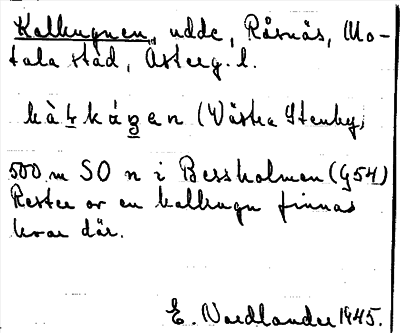 Kalkugnen, udde, Råsnäs, Mo-
tala stad, Österg. l.
kàłkáგen (Västra Stenby,
500 m SO n i Bessholmen (G54)
Rester av en kalkugn finnas
kvar där.
E. Nordlander 1945.